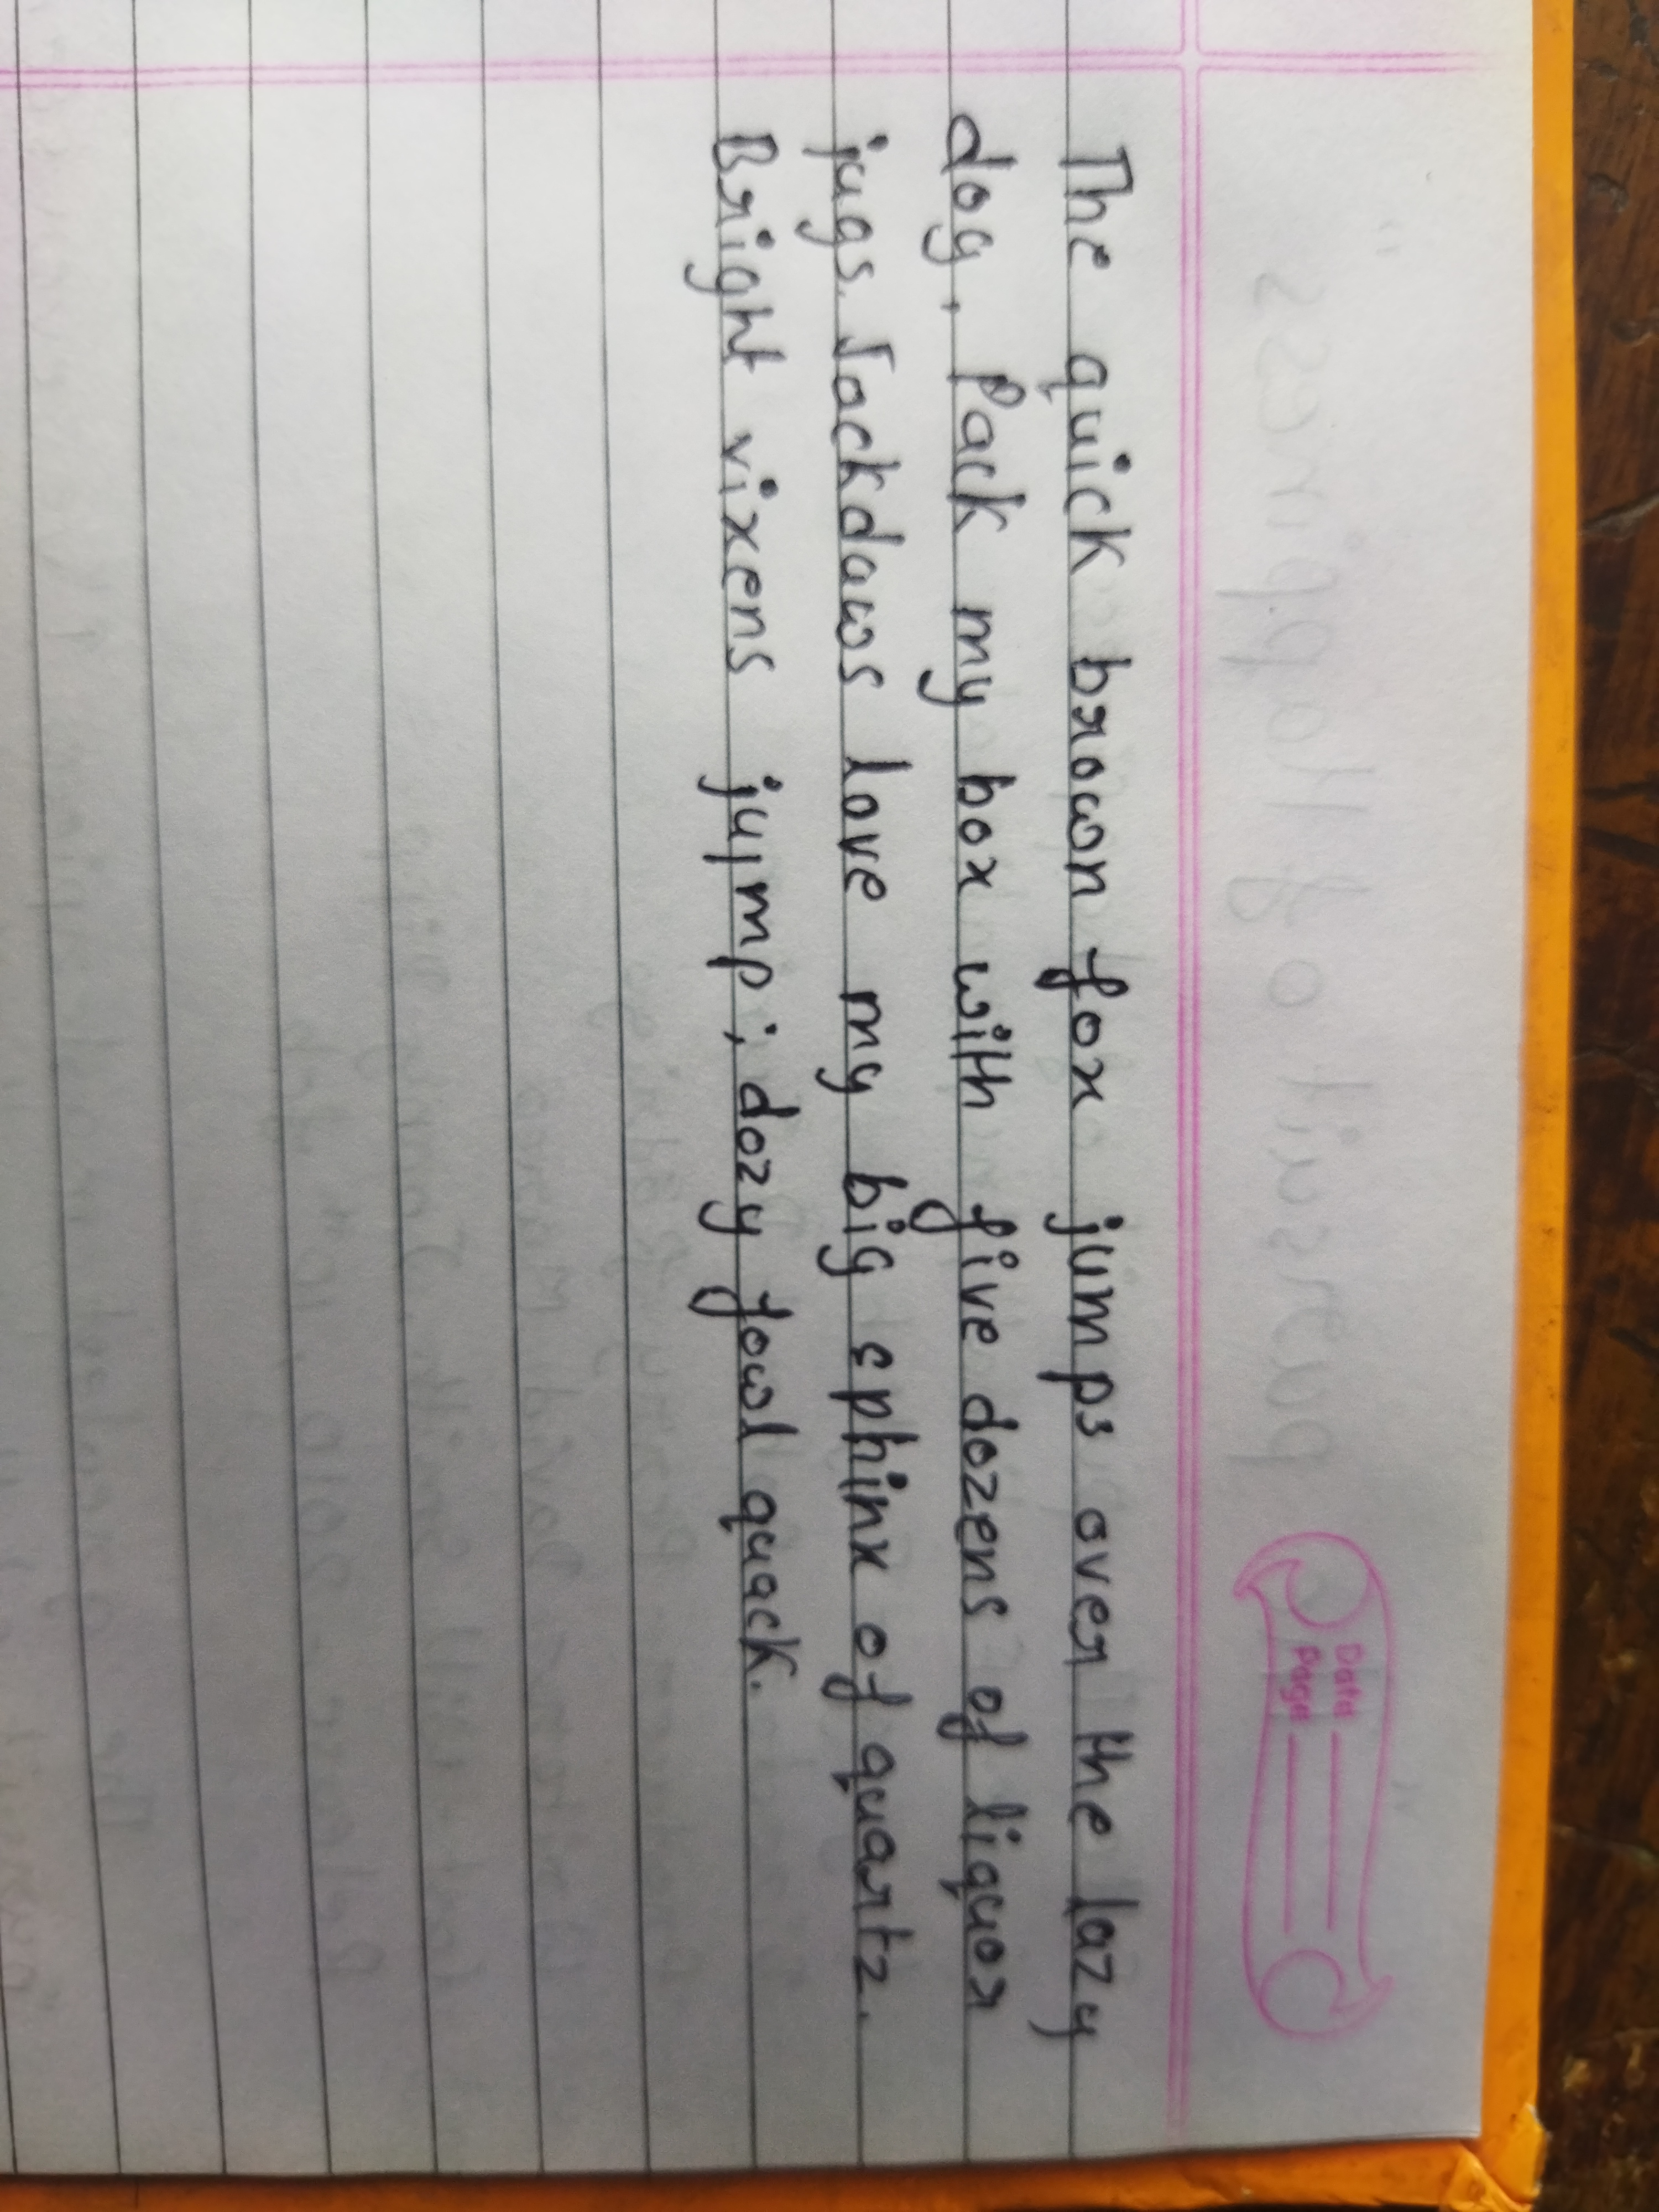 Date
Page
The quick brown fox jumps over the lazy
dog, Pack my box with five dozens of liquor
jugs. Jackdaws love my big sphinx of quartz.
Bright vixens jump; dozy fowl quack.